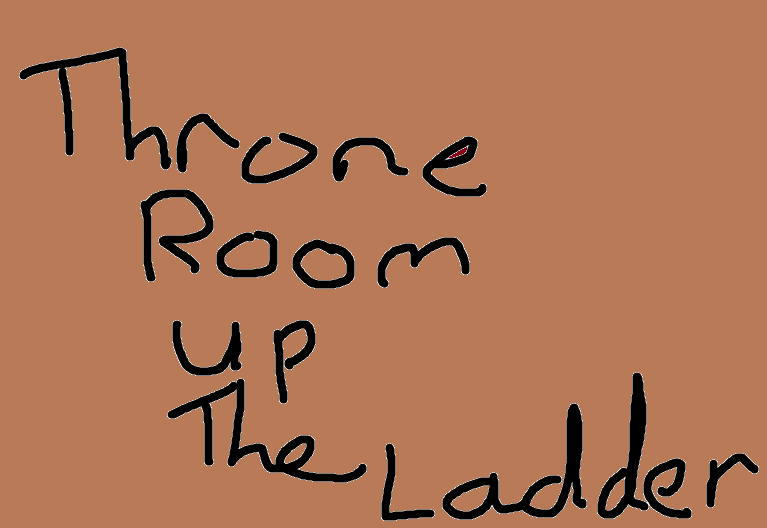 Throne
Room
up
The Ladder